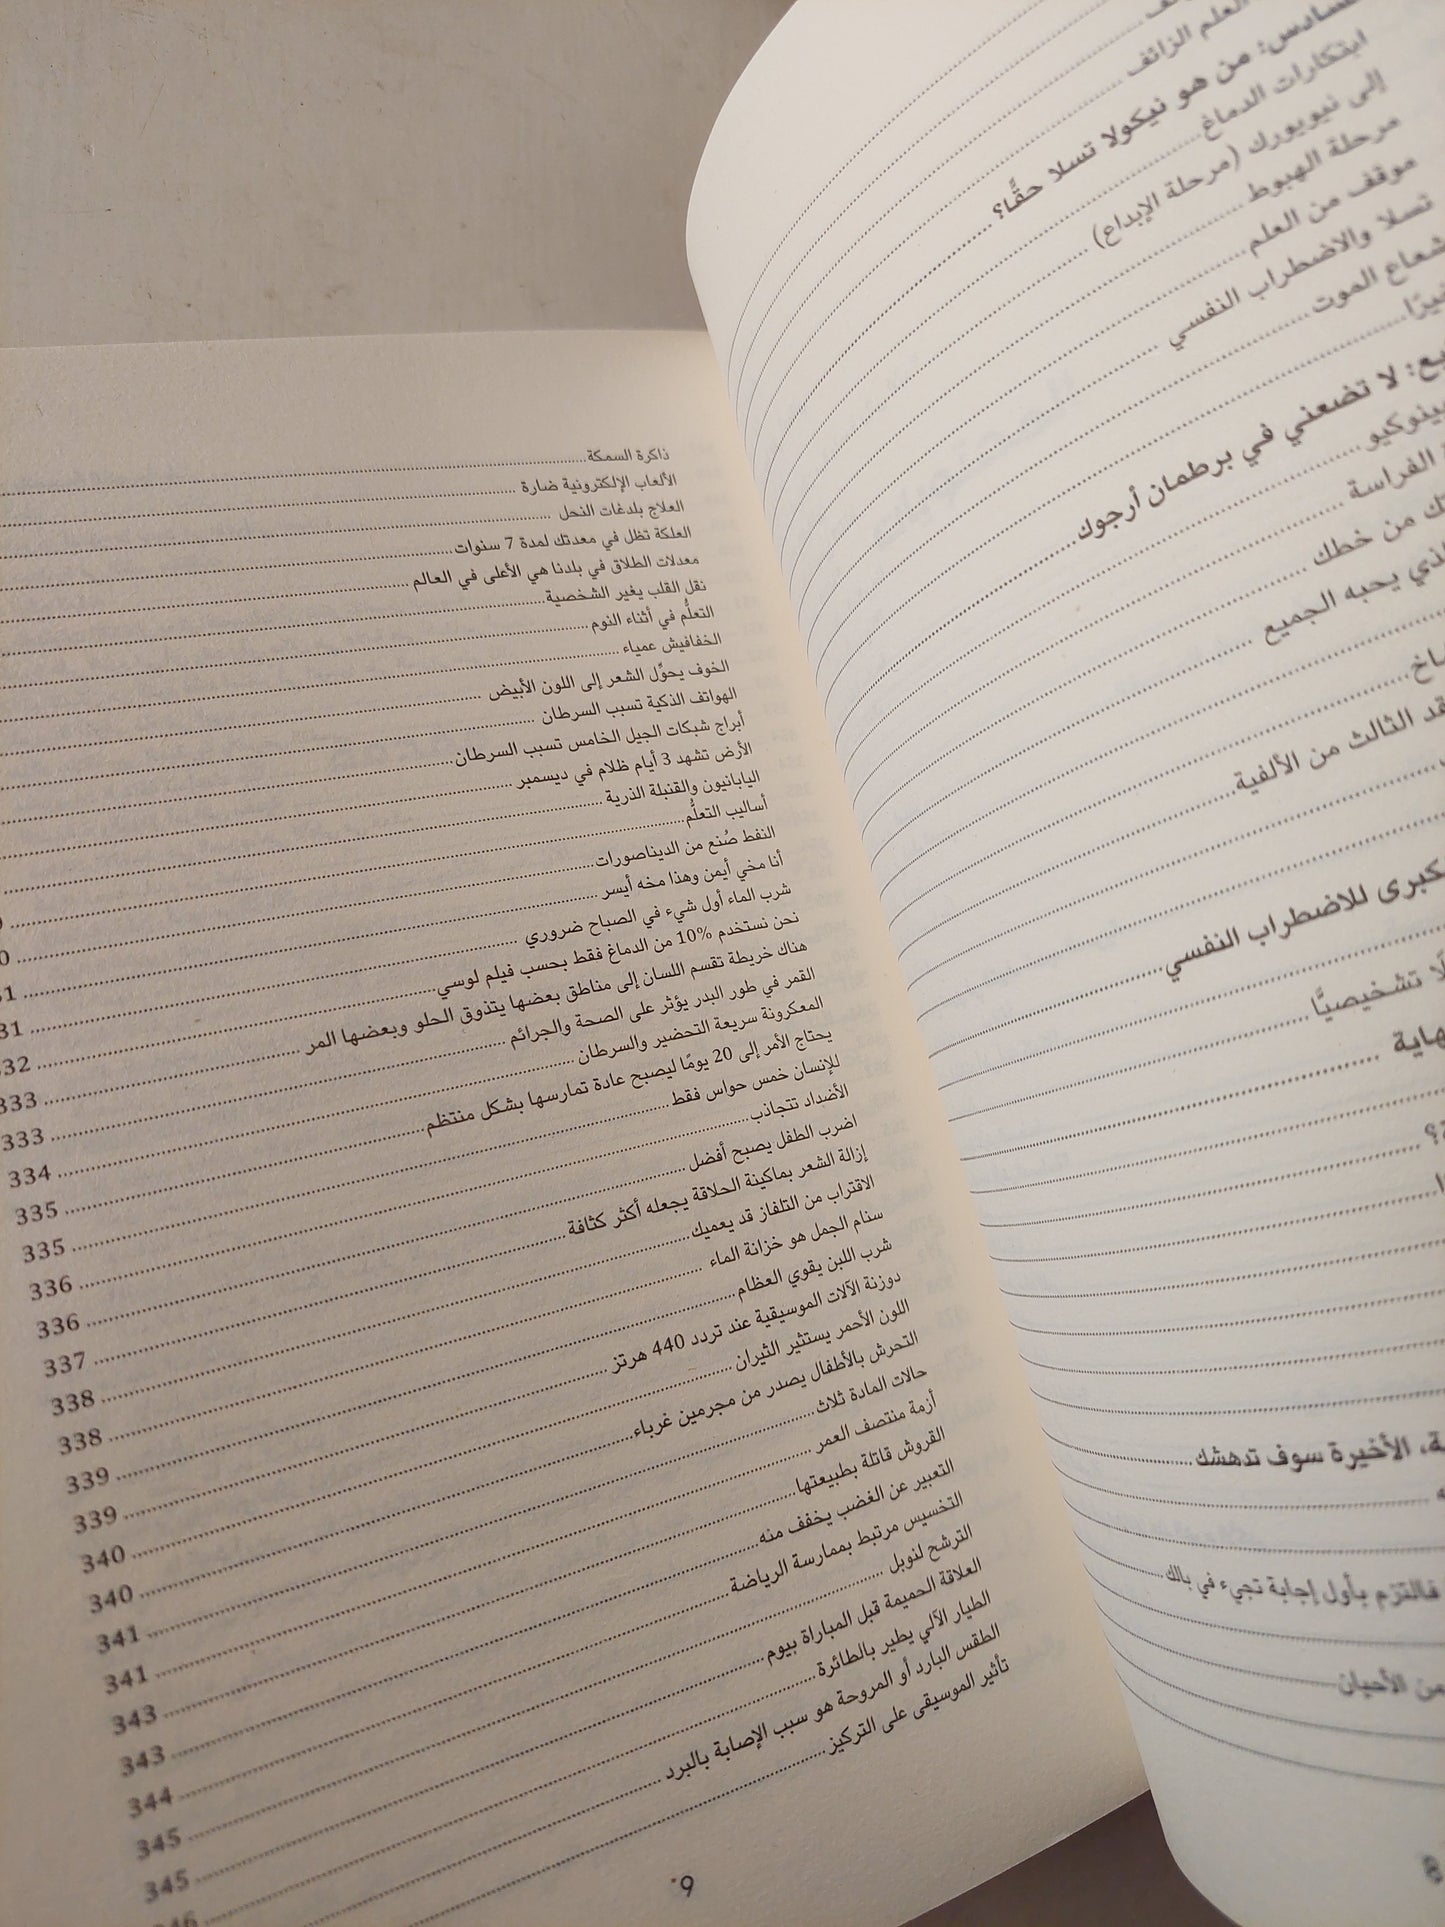 العلم الزائف
من هو نيكولا تسلا حقًّا؟
ابتكارات الدماغ
إلى نيويورك (مرحلة الإبداع)
مرحلة الهبوط
موقف من العلم
تسلا والاضطراب النفسي
شعاع الموت
لا تضعني في برطمان أرجوك
الفراسة
من خطك
يحبه الجميع
الثالث من الألفية
للاضطراب النفسي
تشخيصيًّا
الأخيرة سوف تدهشك
فالتزم بأول إجابة تجيء في بالك
من الأحيان
8
ذاكرة السمكة
الألعاب الإلكترونية ضارة
العلاج بلدغات النحل
العلكة تظل في معدتك لمدة 7 سنوات
معدلات الطلاق في بلدنا هي الأعلى في العالم
نقل القلب يغير الشخصية
التعلُّم في أثناء النوم
الخفافيش عمياء
الخوف يحوِّل الشعر إلى اللون الأبيض
الهواتف الذكية تسبب السرطان
أبراج شبكات الجيل الخامس تسبب السرطان
الأرض تشهد 3 أيام ظلام في ديسمبر
اليابانيون والقنبلة الذرية
أساليب التعلُّم
النفط صُنع من الديناصورات
أنا مخي أيمن وهذا مخه أيسر
شرب الماء أول شيء في الصباح ضروري
نحن نستخدم 10% من الدماغ فقط بحسب فيلم لوسي
هناك خريطة تقسم اللسان إلى مناطق بعضها يتذوق الحلو وبعضها المر
القمر في طور البدر يؤثر على الصحة والجرائم
المعكرونة سريعة التحضير والسرطان
يحتاج الأمر إلى 20 يومًا ليصبح عادة تمارسها بشكل منتظم
للإنسان خمس حواس فقط
الأضداد تتجاذب
اضرب الطفل يصبح أفضل
إزالة الشعر بماكينة الحلاقة يجعله أكثر كثافة
الاقتراب من التلفاز قد يعميك
سنام الجمل هو خزانة الماء
شرب اللبن يقوي العظام
دوزنة الآلات الموسيقية عند تردد 440 هرتز
اللون الأحمر يستثير الثيران
التحرش بالأطفال يصدر من مجرمين غرباء
حالات المادة ثلاث
أزمة منتصف العمر
القروش قاتلة بطبيعتها
التعبير عن الغضب يخفف منه
التخسيس مرتبط بممارسة الرياضة
الترشح لنوبل
العلاقة الحميمة قبل المباراة بيوم
الطيار الآلي يطير بالطائرة
الطقس البارد أو المروحة هو سبب الإصابة بالبرد
تأثير الموسيقى على التركيز
332
333
333
334
335
335
336
336
337
338
338
339
339
340
340
341
341
343
343
344
345
345
9